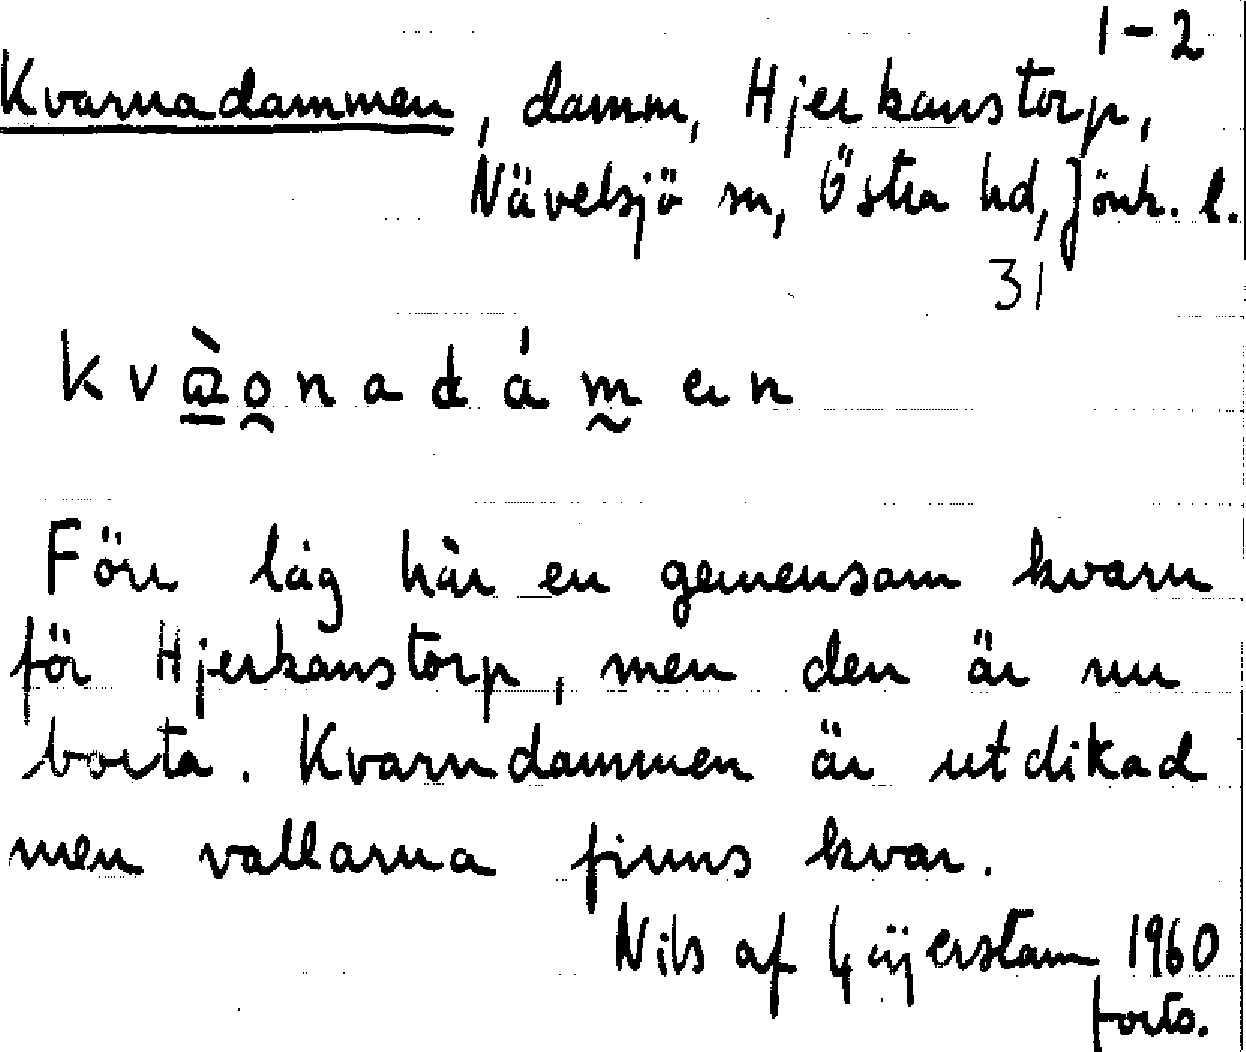 1-2
Kvarnadammen, damm, Hjerkanstorp,
Nävelsjö sn, Östra hd, Jönk. l.
31
kvàonadámen
Förr låg här en gemensam kvarn
för Hjerkanstorp, men den är nu
borta. Kvarndammen är utdikad
men vallarna finns kvar.
Nils af Geijerstam 1960
forts.